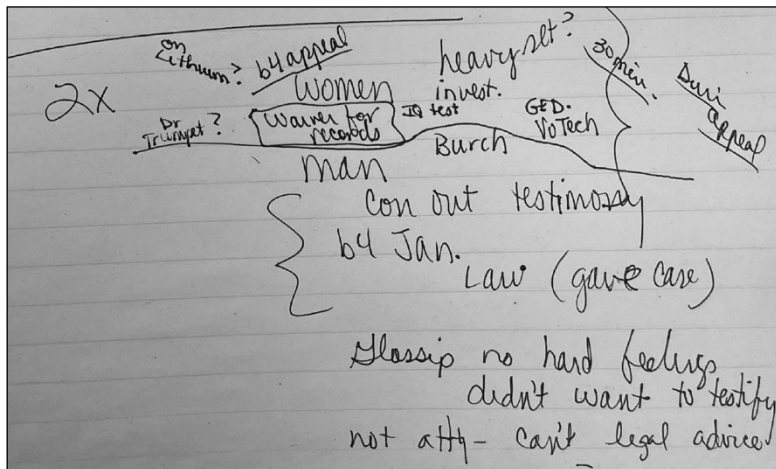 on Lithium? b4 appeal heavyset? 30 min.
2x women invest. Duri
Dr Trumpet? waiver for records IQ test GED. VoTech appeal
man Burch
con out testimony
b4 Jan.
Law (gave case)
Glossip no hard feelings
didn't want to testify
not atty- can't legal advice